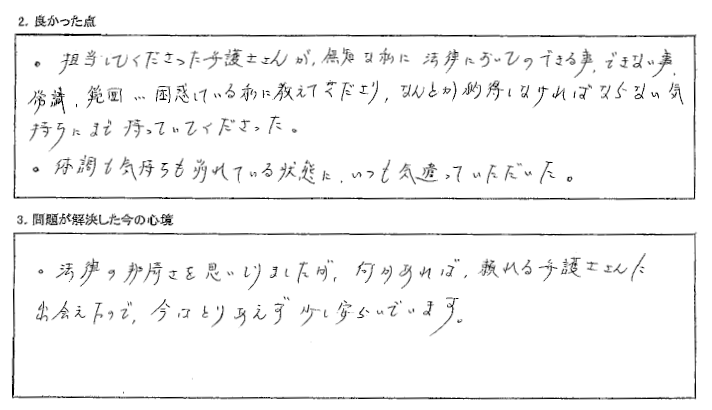 2. 良かった点
・担当してくださった弁護士さんが、無知な私に法律においてのできる事、できない事、
常識、範囲…困惑している私に教えて下さり、なんとか納得しなければならない気
持ちにまで持っていてくださった。
・体調も気持ちも崩れている状態に、いつも気遣っていただいた。
3. 問題が解決した今の心境
・法律の難しさを思いしりましたが、何かあれば、頼れる弁護士さんに
出会えたので、今はとりあえず少し安らいでいます。